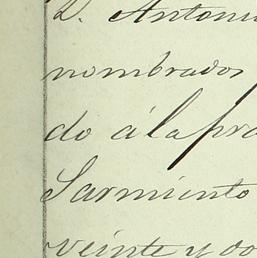 D. Antonio
nombrados
do á la pra
Sarmiento
veinte y do